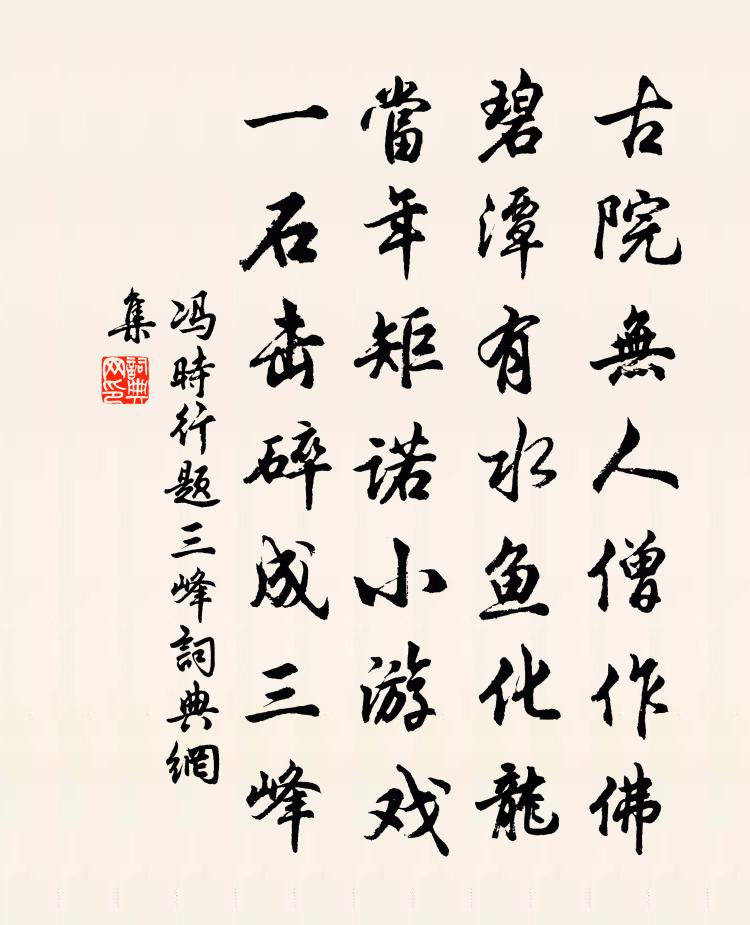 古院無人僧作佛
碧潭有水鱼化龍
當年矩诺小游戏
一石击碎成三峰
冯時行题三峰詞典網
集
詞典网印